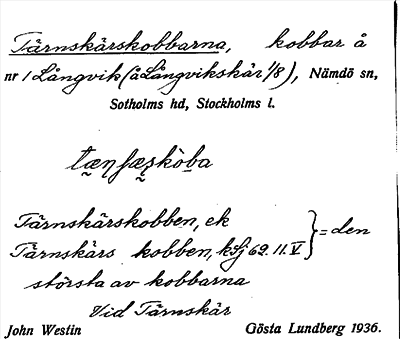 Tärnskärskobbarna, kobbar å
nr 1 Långvik (å Långvikskär 1/8), Nämdö sn,
Sotholms hd, Stockholms l.
Tärnskärskobben, ek
Tärnskärs kobben, ksj 62. 11. V } = den
största av kobbarna
vid Tärnskär
John Westin Gösta Lundberg 1936.